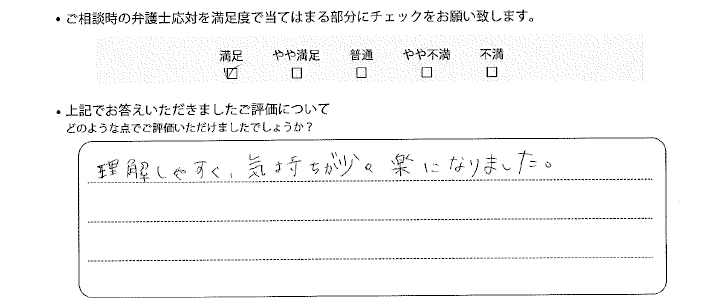 ・ご相談時の弁護士応対を満足度で当てはまる部分にチェックをお願い致します。
満足 やや満足 普通 やや不満 不満
☑ □ □ □ □
・上記でお答えいただきましたご評価について
どのような点でご評価いただけましたでしょうか？
理解しやすく、気持ちが少々楽になりました。